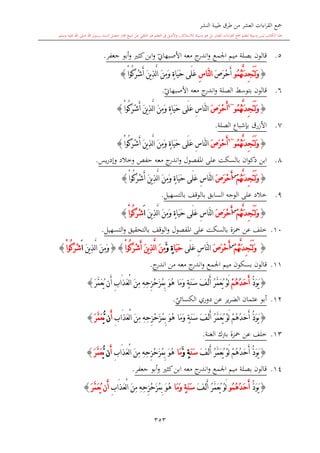 جمع القراءات العشر من طرق طيبة النشر
٥. قالون بصلة ميم الجمع واندرج معه الأصبهانيّ وابن كثير وأبو جعفر.
﴿ وَلَتَجِدَنَّهُمُو أَحْرَصَ النَّاسِ عَلَى حَيَاةٍ وَمِنَ الَّذِينَ أَشْرَكُوا ﴾
٦. قالون بتوسط الصلة واندرج معه الأصبهانيّ.
﴿ وَلَتَجِدَنَّهُمُو أَحْرَصَ النَّاسِ عَلَى حَيَاةٍ وَمِنَ الَّذِينَ أَشْرَكُوا ﴾
٧. الأزرق بإشباع الصلة.
﴿ وَلَتَجِدَنَّهُمُو أَحْرَصَ النَّاسِ عَلَى حَيَاةٍ وَمِنَ الَّذِينَ أَشْرَكُوا ﴾
٨. ابن ذكوان بالسكت على المفصول واندرج معه حفص وخلاد وإدريس.
﴿ وَلَتَجِدَنَّهُمْ أَحْرَصَ النَّاسِ عَلَى حَيَاةٍ وَمِنَ الَّذِينَ أَشْرَكُوا ﴾
٩. خلاد على الوجه السابق بالوقف بالتسهيل.
﴿ وَلَتَجِدَنَّهُمْ أَحْرَصَ النَّاسِ عَلَى حَيَاةٍ وَمِنَ الَّذِينَ أَشْرَكُوا ﴾
١٠. خلف عن حمزة بالسكت على المفصول والوقف بالتحقيق والتسهيل.
﴿ وَلَتَجِدَنَّهُمْ أَحْرَصَ النَّاسِ عَلَى حَيَاةٍ وَمِنَ الَّذِينَ أَشْرَكُوا ﴾ ﴿ وَمِنَ الَّذِينَ أَشْرَكُوا ﴾
١١. قالون بسكون ميم الجمع واندرج معه من اندرج.
﴿ يَوَدُّ أَحَدُهُمْ لَوْ يُعَمَّرُ أَلْفَ سَنَةٍ وَمَا هُوَ بِمُزَحْزِحِهِ مِنَ الْعَذَابِ أَن يُعَمَّرَ ﴾
١٢. أبو عثمان الضرير عن دوري الكسائيّ.
﴿ يَوَدُّ أَحَدُهُمْ لَوْ يُعَمَّرُ أَلْفَ سَنَةٍ وَمَا هُوَ بِمُزَحْزِحِهِ مِنَ الْعَذَابِ أَن يُعَمَّرَ ﴾
١٣. خلف عن حمزة بترك الغنة.
﴿ يَوَدُّ أَحَدُهُمْ لَوْ يُعَمَّرُ أَلْفَ سَنَةٍ وَمَا هُوَ بِمُزَحْزِحِهِ مِنَ الْعَذَابِ أَن يُعَمَّرَ ﴾
١٤. قالون بصلة ميم الجمع واندرج معه ابن كثير وأبو جعفر.
﴿ يَوَدُّ أَحَدُهُمُو لَوْ يُعَمَّرُ أَلْفَ سَنَةٍ وَمَا هُوَ بِمُزَحْزِحِهِ مِنَ الْعَذَابِ أَن يُعَمَّرَ ﴾
٣٥٣